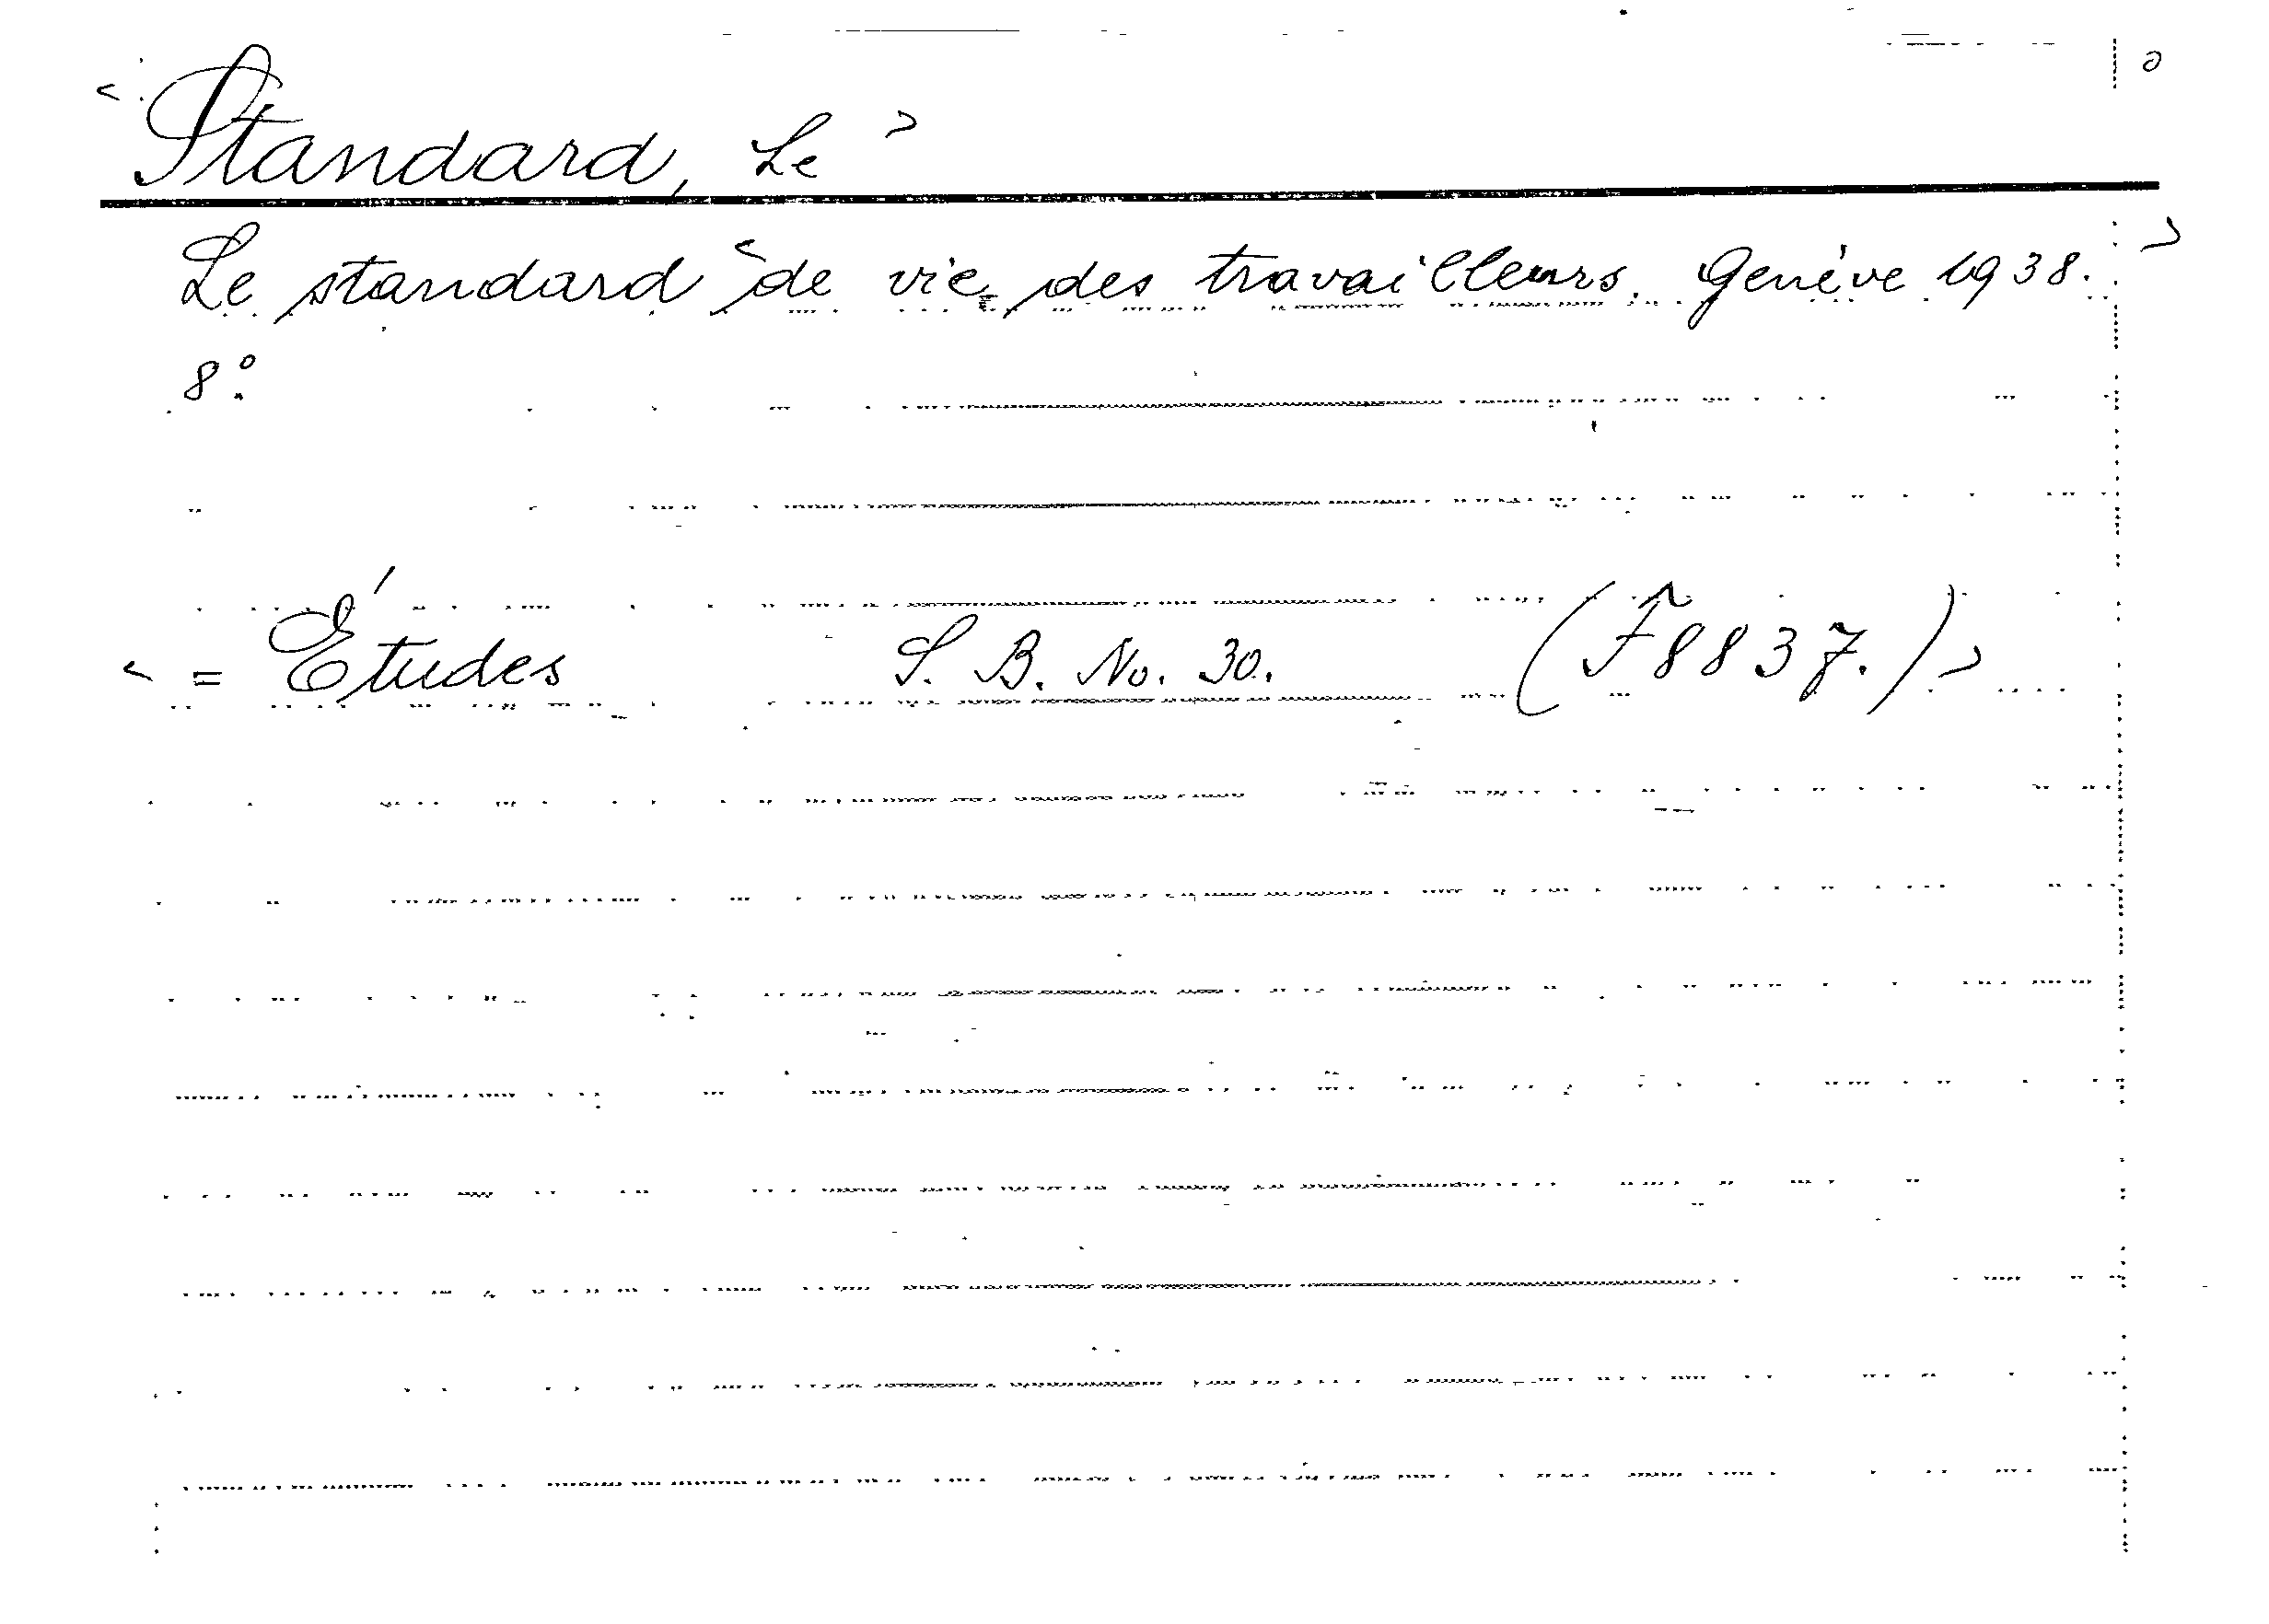 < Standard, Le >
Le standard < de vie des travailleurs. Genève 1938. >
8°.
< = Études S. B. No. 30. (F 8837.) >